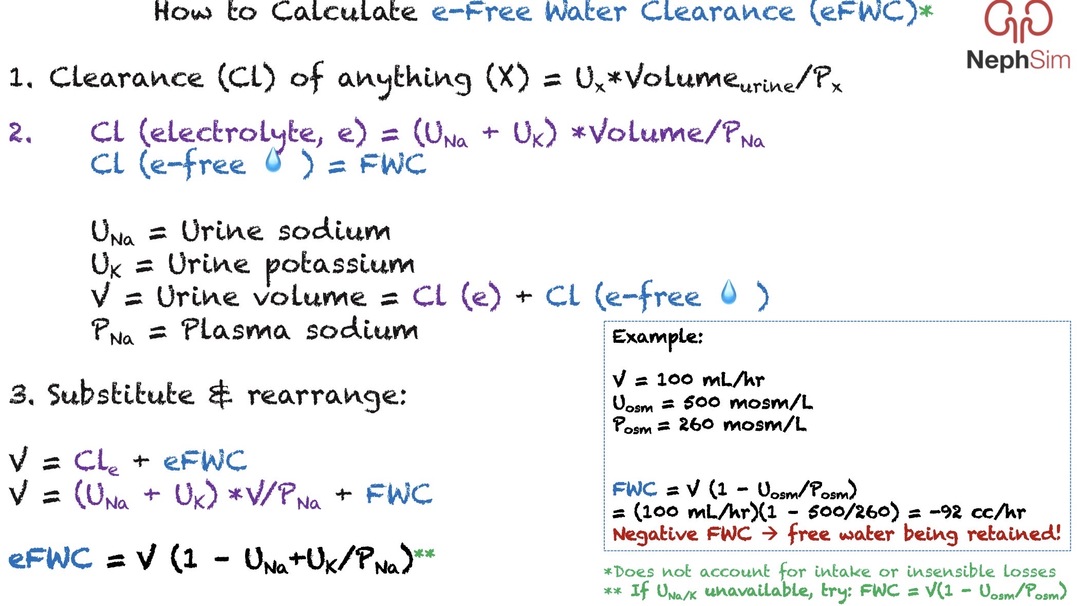 How to Calculate e-Free Water Clearance (eFWC)*
NephSim
1. Clearance (Cl) of anything (X) = Ux*Volumeurine/Px
2. Cl (electrolyte, e) = (UNa + UK) *Volume/PNa
Cl (e-free 💧 ) = FWC
UNa = Urine sodium
UK = Urine potassium
V = Urine volume = Cl (e) + Cl (e-free 💧 )
PNa = Plasma sodium
3. Substitute & rearrange:
V = CLe + eFWC
V = (UNa + UK) *V/PNa + FWC
eFWC = V (1 - UNa+UK/PNa)**
Example:
V = 100 mL/hr
Uosm = 500 mosm/L
Posm = 260 mosm/L
FWC = V (1 - Uosm/Posm)
= (100 mL/hr)(1 - 500/260) = -92 cc/hr
Negative FWC → free water being retained!
*Does not account for intake or insensible losses
** If UNa/K unavailable, try: FWC = V(1 - Uosm/Posm)